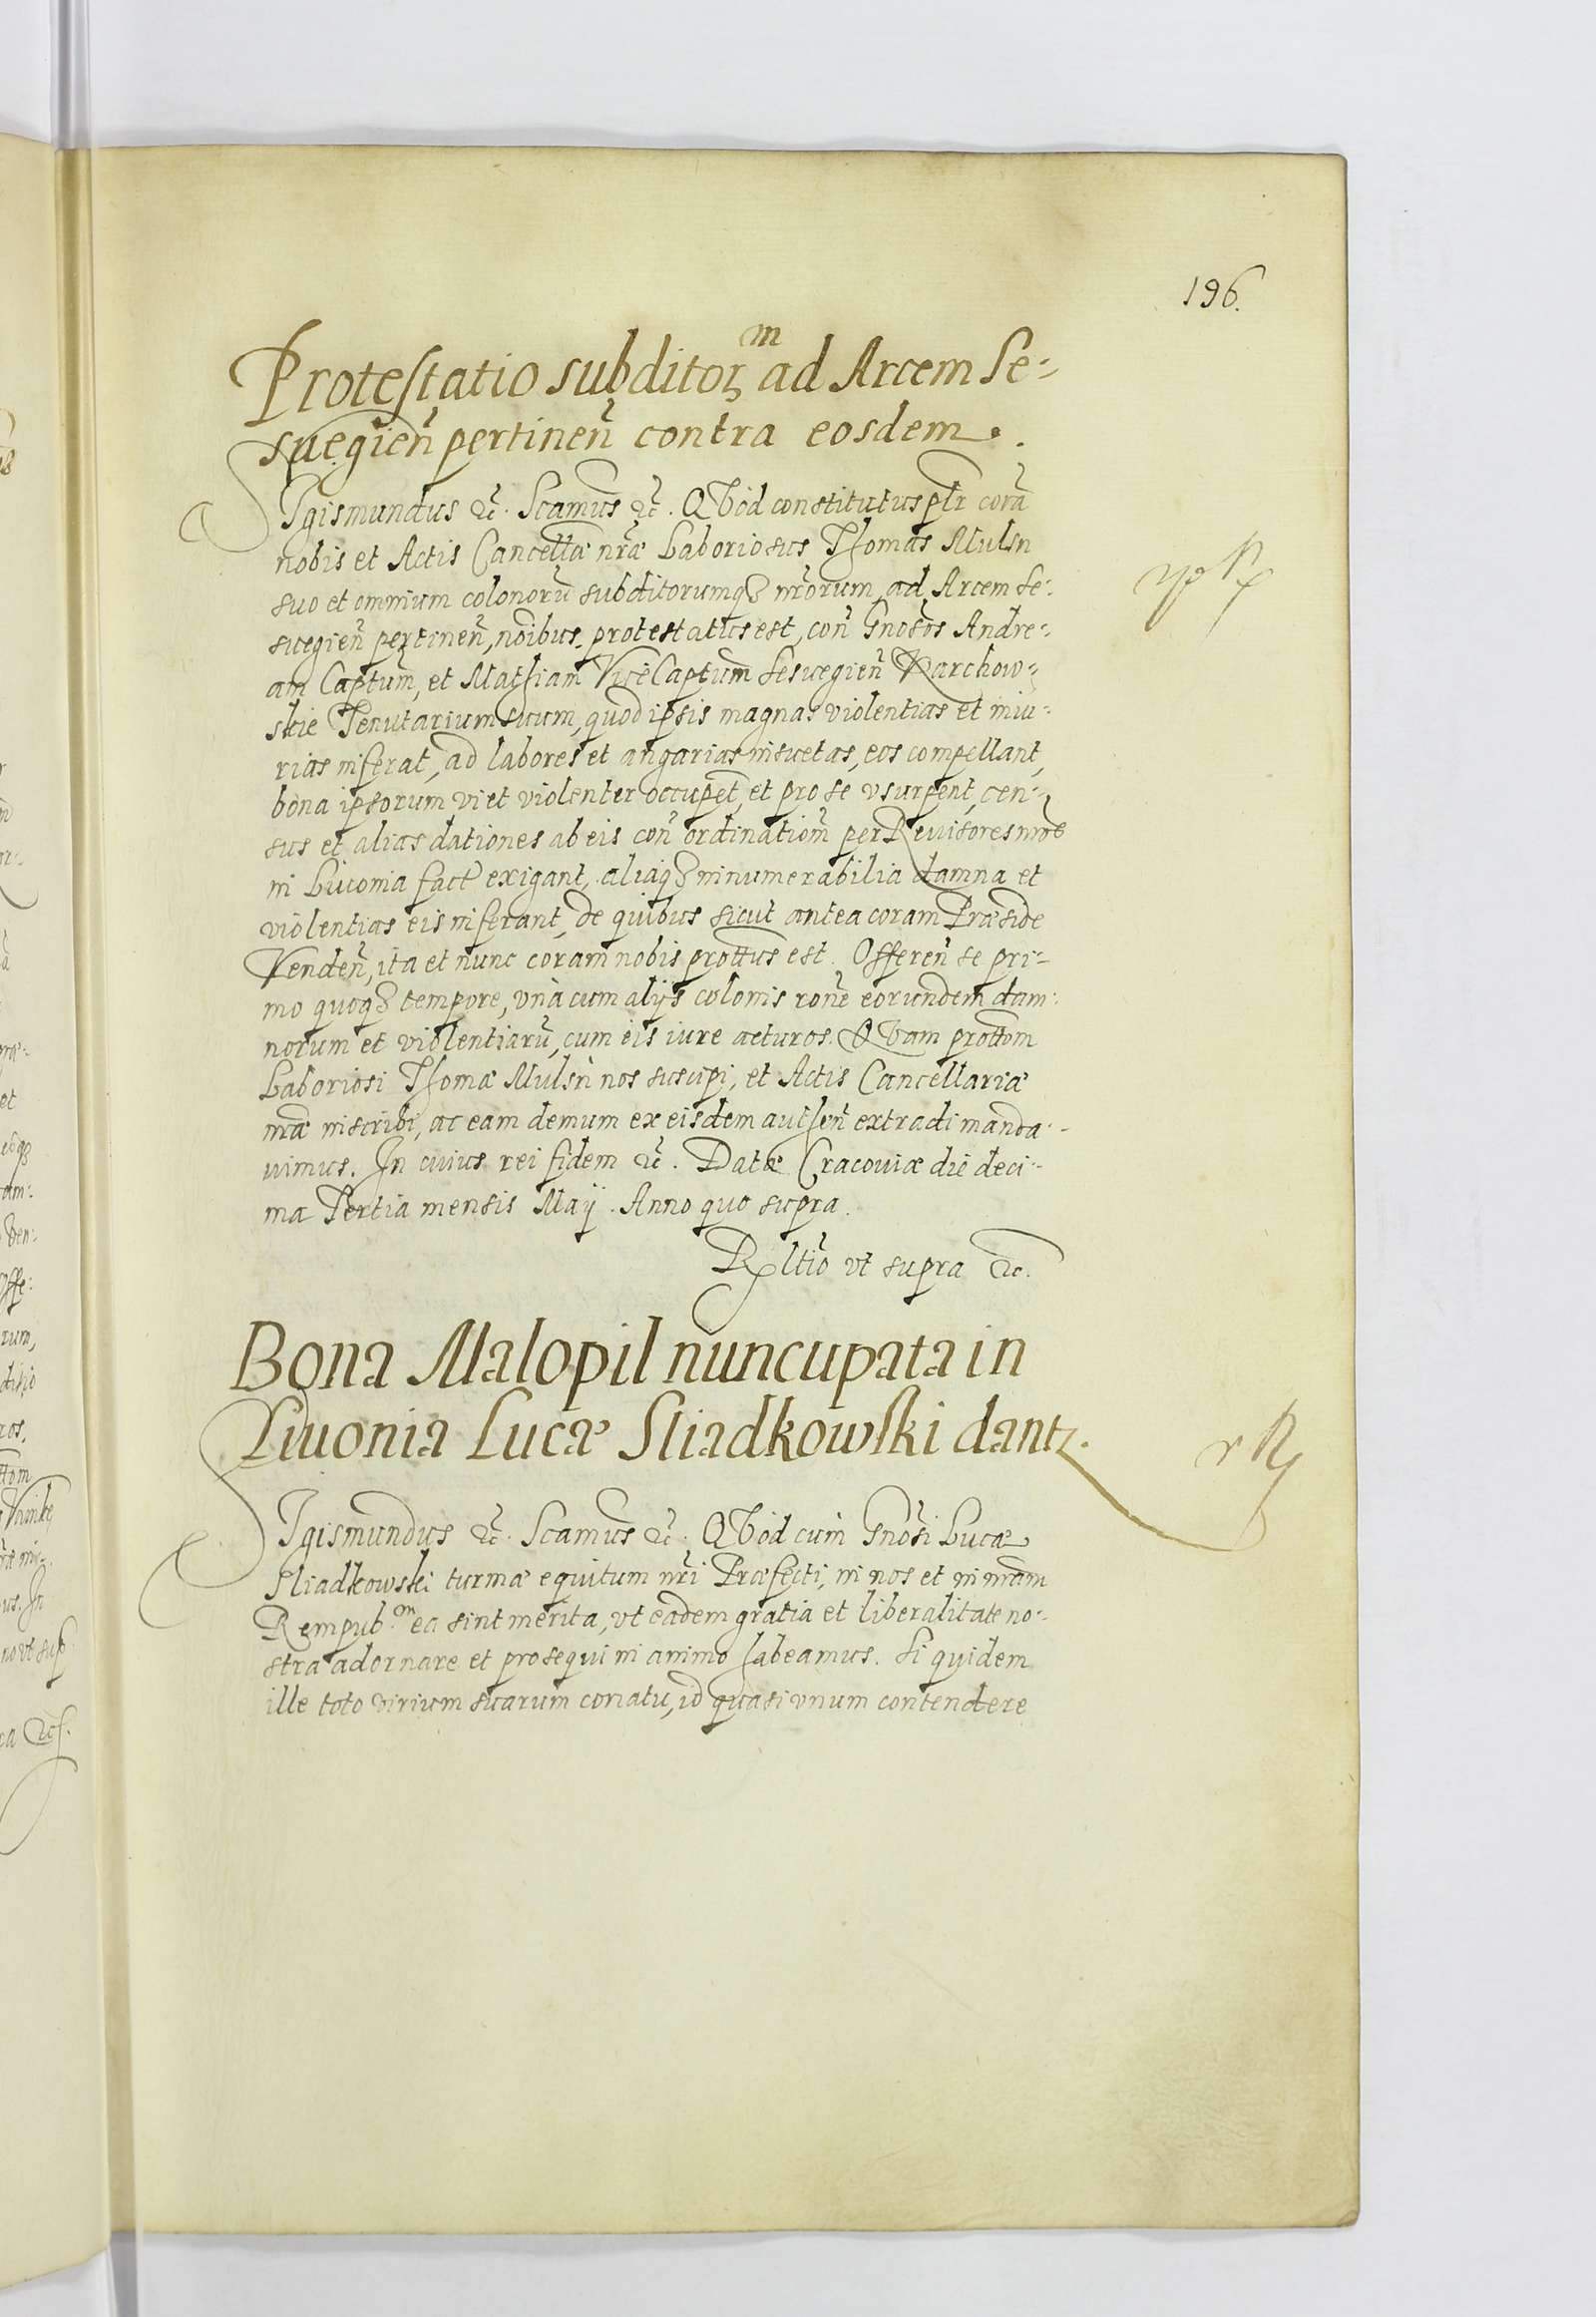 196.
Protestatio subditor̃m ad Arcem Se-
suegien̄ pertinen̄ contra eosdem.
SIgismundus &c. Scamus &c. QVod constitutus plr corā
nobis et Actis Cancellæ nr̄æ Laboriosus Thomas Mulsn
suo et omnium colonorū subditorumq₃ nr̄orum ad Arcem Se-
suegien̄ pertinen̄, nōibus protestatus est, con̄ Gnosos Andre-
am Captum̄, et Mathiam ViceCaptum̄ Sesuegien̄ Karchow-
skie Tenutarium suum, quod ipsis magnas violentias et iniu-
rias inferat, ad labores et angarias insuetas, eos compellant,
bona ipsorum vi et violenter occupet, et pro se vsurpent, cen-
sus et alias dationes ab eis con̄ ordination̄ per Reuisores nr̄os
in Liuonia fact exigant, aliaq₃ innumerabilia damna et
violentias eis inferant, de quibus sicut antea coram Præside
Venden̄, ita et nunc coram nobis prottus est. Offeren̄ se pri-
mo quoq₃ tempore, vnà cum alijs colonis ron̄e eorundem dam-
norum et violentiarū, cum eis iure acturos. QVam prottom
Laboriosi Thomæ Mulsn nos suscipi, et Actis Cancellariæ
nr̄æ inscribi, ac eam demum ex eisdem authen̄ extradi manda-
uimus. In cuius rei fidem &c. Datæ Cracouiæ die deci-
ma Tertia mensis Maij. Anno quo supra.
Rltio vt supra &c.
Bona Malopil nuncupata in
Liuonia Lucæ Sliadkowski dantz.
SIgismundus &c. Scamus &c. QVod cum Gnosi Lucæ
Sliadkowski turmæ equitum nr̄i Præfecti, in nos et in nr̄am
Rempub.em ea sint merita, vt eadem gratia et liberalitate no-
stra adornare et prosequi in animo habeamus. Si quidem
ille toto virium suarum conatu, id quasi vnum contendere